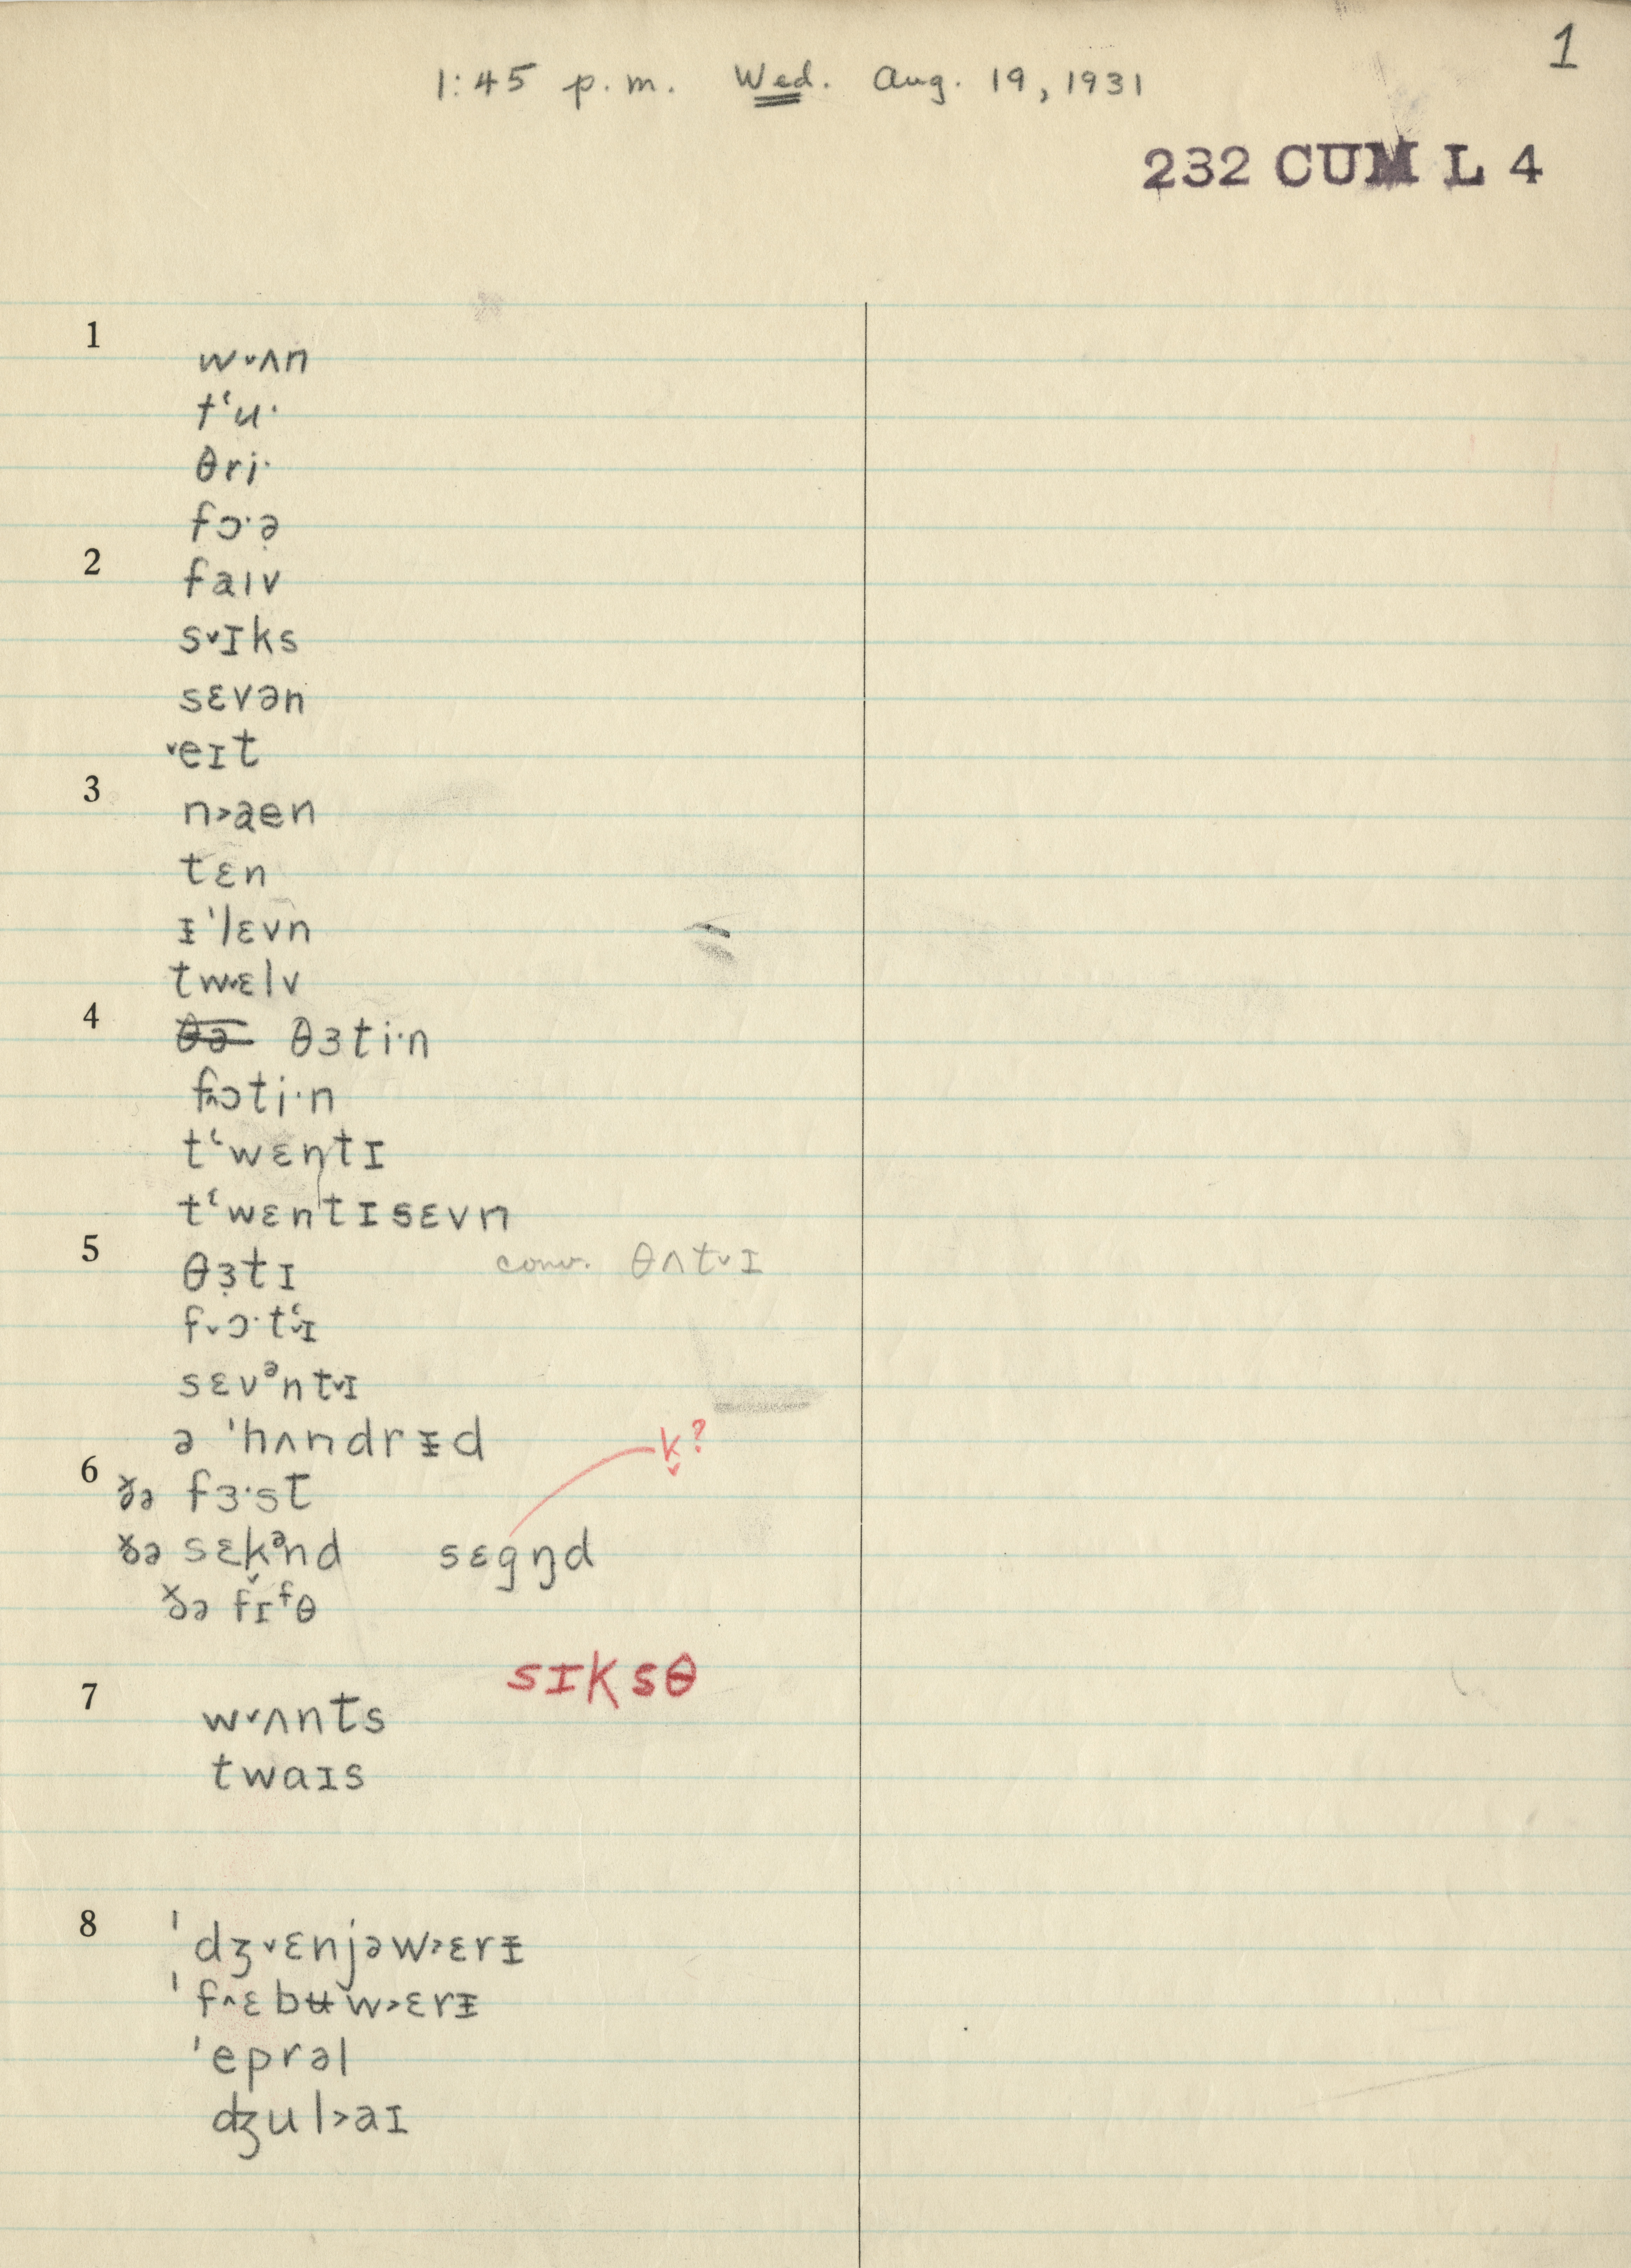 1
1:45 p.m. Wed. Aug. 19, 1931
232 CUM L 4
1
w˅ʌn
tʻu·
θri·
fɔ·ə̣
2
faıv
s˅ɪks
sɛvən
˅eɪt
3
n˃aen
tɛn
ᵻˈlɛvn
tw˅ɛlv
4
θə θɜti·n
f˄ɔti·n
tʻwɛntɪ
tʻwɛntɪsɛvn
5
θɜ̣tɪ conv. θʌt˅ɪ
f˅ɔ·tʻ˅ɪ
sɛvᵊnt˅ɪ
ə ˈhʌndrᵻd
k̬?
6
ðə fɜ·st
ðə sɛk̬ᵊnd sɛgŋd
ðə fɪᶠθ
sɪksθ
7
w˅ʌnts
twaɪs
8
ˈdʒ˅ɛnjəw˃ɛrᵻ
ˈf˄ɛbʉw˃ɛrᵻ
ˈeprəl
dʒul˃aɪ